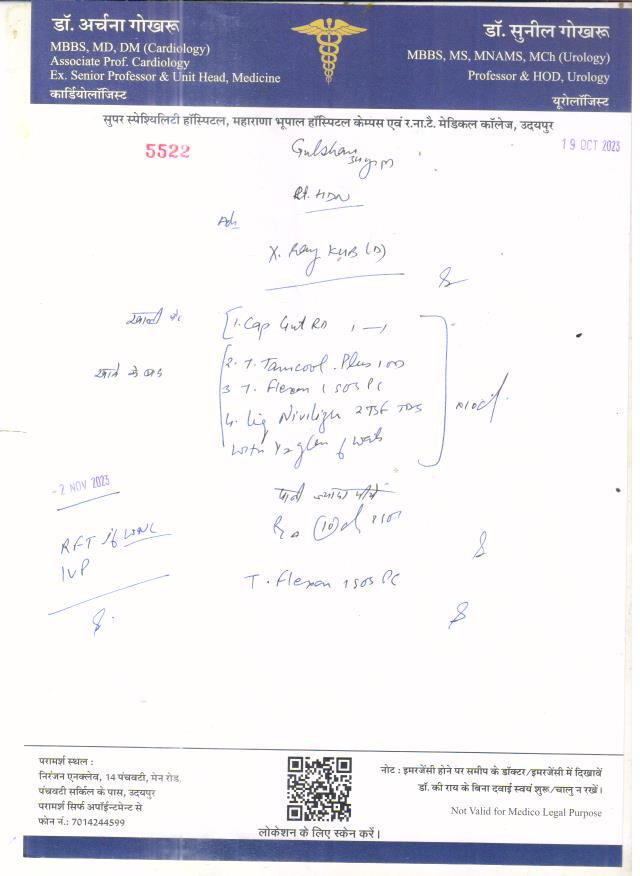 डॉ. अर्चना गोखरू
MBBS, MD, DM (Cardiology)
Associate Prof. Cardiology
Ex. Senior Professor & Unit Head, Medicine
कार्डियोलॉजिस्ट
डॉ. सुनील गोखरू
MBBS, MS, MNAMS, MCh (Urology)
Professor & HOD, Urology
यूरोलॉजिस्ट
सुपर स्पेश्यिलिटी हॉस्पिटल, महाराणा भूपाल हॉस्पिटल केम्पस एवं र.ना.टै. मेडिकल कॉलेज, उदयपुर
5522
19 OCT 2023
Gulshan
Rt. HDN
Adv
X. Ray KUB (D)
खाली पेट
1. Cap Gut RD 1 — 1
खाने के बाद
2. T. Tamcool Plus 1 OD
3 T. Flexon 1 SOS PC
4. Liq 2 TSF TDS
with 1/2 glass of water
-2 NOV 2023
पानी ज्यादा पीये
RFT if WNL
IVP
T. Flexon 1 SOS PC
परामर्श स्थल :
निरंजन एनक्लेव, 14 पंचवटी, मेन रोड,
पंचवटी सर्किल के पास, उदयपुर
परामर्श सिर्फ अपॉईन्टमेन्ट से
फोन नं.: 7014244599
लोकेशन के लिए स्केन करें।
नोट : इमरजेंसी होने पर समीप के डॉक्टर/इमरजेंसी में दिखावें
डॉ. की राय के बिना दवाई स्वयं शुरू/चालु न रखें।
Not Valid for Medico Legal Purpose